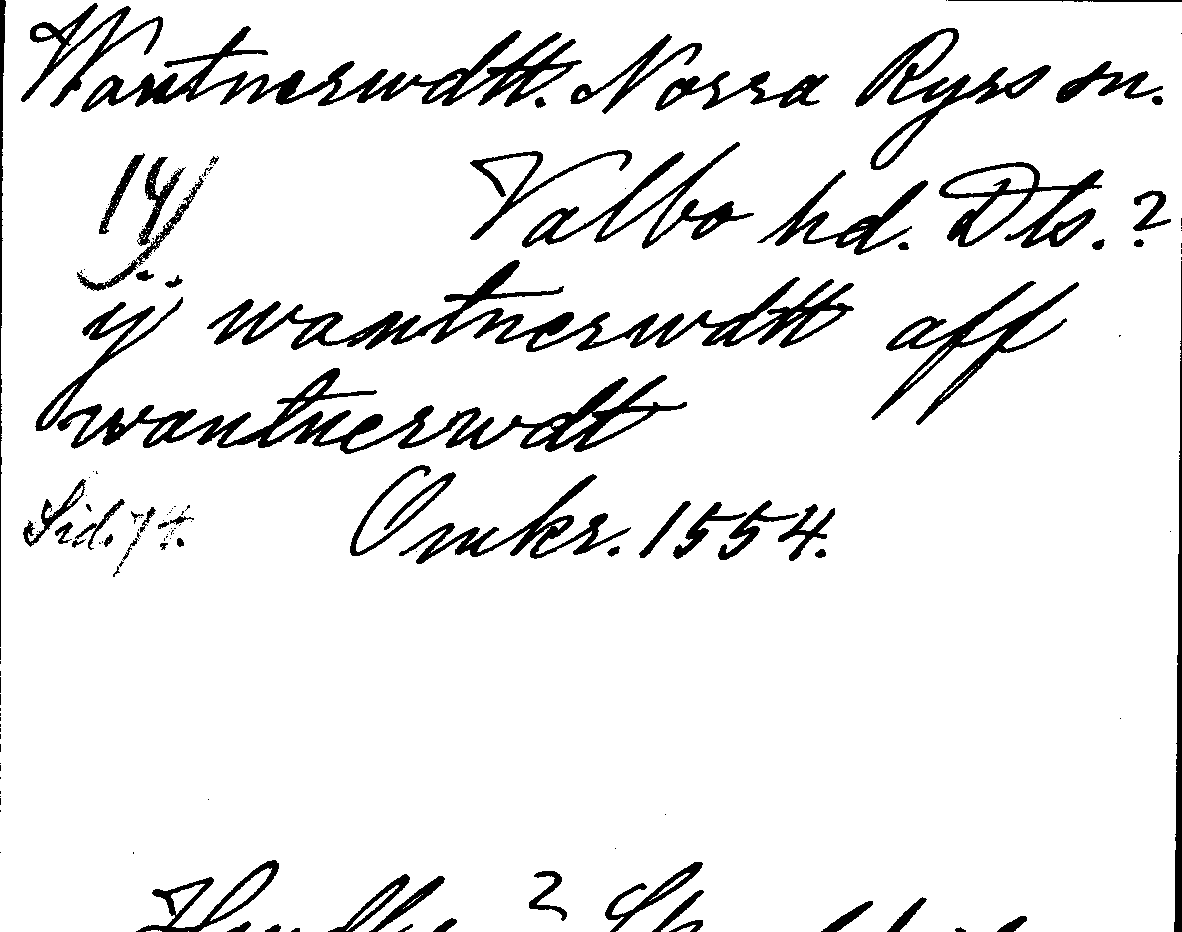 Wantnerwdtt. Norra Ryrs sn.
14)
Valbo hd. Dls.?
ij wantnerwdtt aff
wantnerwdt
Sid. 74.
Omkr. 1554.